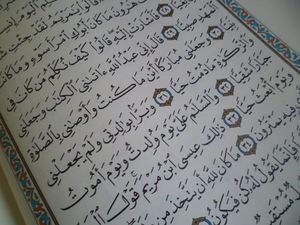 هَٰرُونَ مَا كَانَ أَبُوكِ ٱمْرَأَ سَوْءٍ وَمَا كَانَتْ
فَأَشَارَتْ إِلَيْهِ قَالُوا۟ كَيْفَ نُكَلِّمُ مَن كَانَ فِى
ٱلْمَهْدِ صَبِيًّا ٢٩ قَالَ إِنِّى عَبْدُ ٱللَّهِ ءَاتَىٰنِىَ ٱلْكِتَٰبَ وَجَعَلَنِى
٣٠ وَجَعَلَنِى مُبَارَكًا أَيْنَ مَا كُنتُ وَأَوْصَٰنِى بِٱلصَّلَوٰةِ
وَٱلزَّكَوٰةِ مَا دُمْتُ حَيًّا ٣١ وَبَرًّۢا بِوَٰلِدَتِى وَلَمْ يَجْعَلْنِى
جَبَّارًا شَقِيًّا ٣٢ وَٱلسَّلَٰمُ عَلَىَّ يَوْمَ وُلِدتُّ وَيَوْمَ أَمُوتُ
وَيَوْمَ أُبْعَثُ حَيًّا ٣٣ ذَٰلِكَ عِيسَى ٱبْنُ مَرْيَمَ قَوْلَ
فِيهِ يَمْتَرُونَ ٣٤ مَا كَانَ لِلَّهِ أَن يَتَّخِذَ مِن
فَإِنَّمَا يَقُولُ لَهُۥ كُن فَيَكُونُ